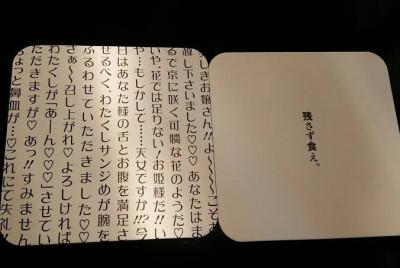 しきお嬢さん!!よ〜〜〜〜こそお
越し下さいました♡♡♡あなたはま
るで京に咲く可憐な花のようだ♡
いや、花では足りない!お姫様だ!!い
や…もしかして……天女ですか!?今
日はあなた様の舌とお腹を満足さ
せるべく、わたくしサンジめが腕を
ふるわせていただきました♡♡
さぁ〜召し上がれ♡よろしければ
わたくしが「あーん♡♡♡」させてい
ただきますが♡あっ!!すみません
ちょっと鼻血が…♡これにて失礼!!
残さず食え。